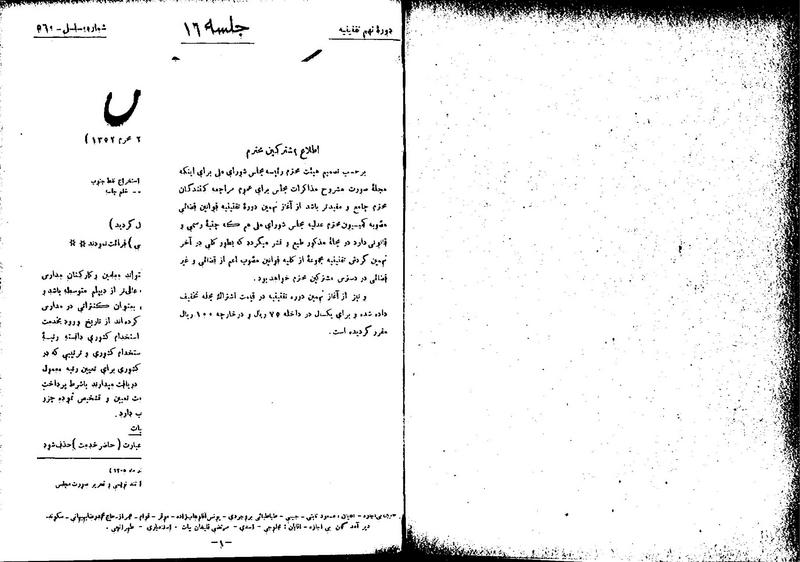 دورهٔ نهم تقنینیه
جلسه ۱۶
شماره مسلسل - ۵۶۰
۲ محرم ۱۳۵۲ )
اطلاع بمشترکین محترم
بر حسب تصمیم هیئت محترم رئیسه مجلس شورای ملی برای اینکه
مجلهٔ صورت مشروح مذاکرات مجلس برای عموم مراجعه کنندگان
محترم جامع و مفیدتر باشد از آغاز نهمین دورهٔ تقنینیه قوانین قضائی
مصوبه کمیسیون محترم عدلیه مجلس شورای ملی هم که جنبهٔ رسمی و
قانونی دارد در مجلهٔ مذکور طبع و نشر میگردد که بطور کلی در آخر
نهمین گردش تقنینیه مجموعهٔ از کلیه قوانین مصوب اعم از قضائی و غیر
قضائی در دسترس مشترکین محترم خواهد بود.
و نیز از آغاز نهمین دوره تقنینیه در قیمت اشتراک مجله تخفیف
داده شده و برای یکسال در داخله ۷۵ ریال و در خارجه ۱۰۰ ریال
مقرر گردیده است.
استخراج نفط جنوب
ختم جلسه
ل گردید )
ـی ) قرائت نمودند ※ ※
تواند معلمین و کارکنان مدارس
عالی‌تر از دیپلم متوسطه باشد و
بعنوان کنتراتی در مدارس
کرده‌اند از تاریخ ورود بخدمت
استخدام کشوری دانسته رتبهٔ
ستخدام کشوری و ترتیبی که در
کشوری برای تعیین رتبه معمول
دریافت میدارند باشرط پرداخت
ـت تعیین و تشخیص نموده جزو
ـب دارد.
ـیات
عبارت ( حاضر خدمت ) حذف شود
ـر ماه ۱۳۰۵ )
ـ تند نویسی و تحریر صورت مجلس
دیر آمدگان بی اجازه - آقایان : - اسدی - مرتضی قلیخان بیات - اسفندیاری - طهرانچی .
-۱-